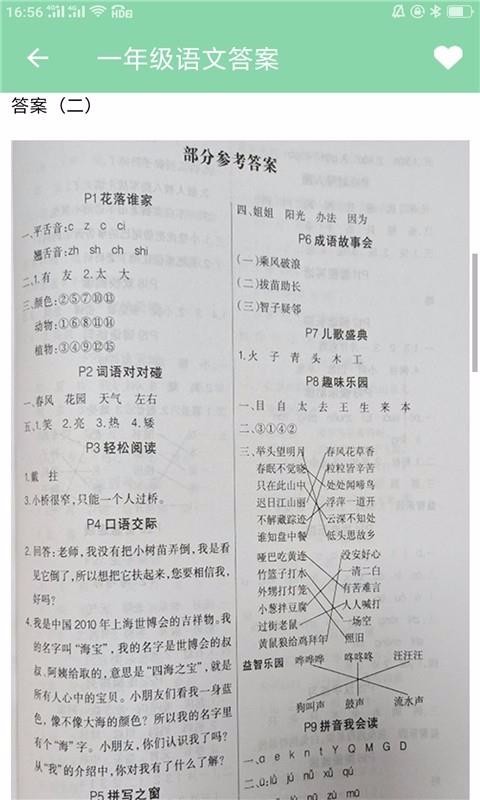 16:56
一年级语文答案
答案（二）
部分参考答案
P1 花落谁家
一、平舌音:c z c ci
翘舌音:zh sh ch shi
二、1.有 友 2.太 大
三、颜色:②⑤⑦⑩⑬
动物:①⑥⑧⑪⑭
植物:③④⑨⑫⑮
P2 词语对对碰
一、春风 花园 天气 左右
五、1.笑 2.亮 3.热 4.矮
P3 轻松阅读
1.戴 拄
3.小桥很窄,只能一个人过桥。
P4 口语交际
2.回答:老师,我没有把小树苗弄倒,我是看
见它倒了,所以想把它扶起来,您要相信我,
好吗?
4.我是中国2010年上海世博会的吉祥物。我
的名字叫“海宝”,我的名字是世博会的叔
叔、阿姨给取的,意思是“四海之宝”,就是
所有人心中的宝贝。小朋友们看我一身蓝
色,像不像大海的颜色？所以我的名字里
有个“海”字。小朋友,你们认识我了吗?
从“我”的介绍中,你对我有了什么了解?
P5 拼写之窗
四、姐姐 阳光 办法 因为
P6 成语故事会
(一)乘风破浪
(二)拔苗助长
(三)智子疑邻
P7 儿歌盛典
1.火 子 青 头 木 工
P8 趣味乐园
一、目 自 太 去 王 生 来 本
二、③①④②
三、举头望明月 春风花草香
春眠不觉晓 粒粒皆辛苦
只在此山中 处处闻啼鸟
迟日江山丽 浮萍一道开
不解藏踪迹 云深不知处
谁知盘中餐 低头思故乡
哑巴吃黄连 没安好心
竹篮子打水 一清二白
外甥打灯笼 有苦难言
小葱拌豆腐 人人喊打
过街老鼠 一场空
黄鼠狼给鸡拜年 照旧
益智乐园 哗哗哗 咚咚咚 汪汪汪
狗叫声 鼓声 流水声
P9 拼音我会读
一、a e k n t Y Q M G D
二、ü:lǜ jú nǚ xǔ qú